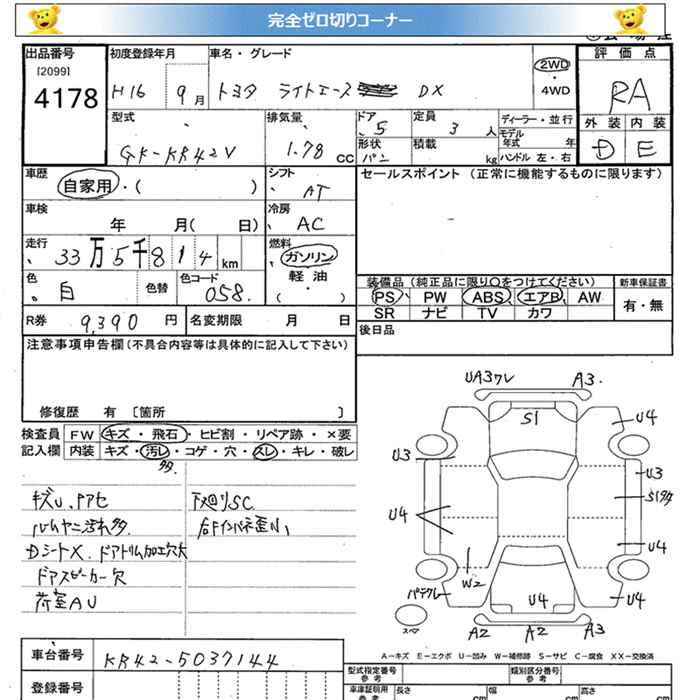 完全ゼロ切りコーナー
出品番号
[2099]
4178
初度登録年月
H16 9月
車名・グレード
トヨタ ライトエース DX
2WD
・
4WD
評価点
RA
外装 内装
D E
型式
GK-KR42V
排気量
1.78 CC
ドア
5
形状
バン
定員
3 人
積載
kg
ディーラー・並行
モデル
年式 年
ハンドル 左・右
車歴
自家用・( )
シフト
AT
セールスポイント (正常に機能するものに限ります)
車検
年 月( 日)
冷房
AC
走行
33万5千814 km
燃料
ガソリン
軽油
( ・ )
色
白
色替
色コード
058
装備品(純正品に限り○をつけてください)
PS PW ABS エアB AW
SR ナビ TV カワ
新車保証書
有・無
R券 9,390 円
名変期限 月 日
後日品
注意事項申告欄(不具合内容等は具体的に記入して下さい)
修復歴 有 [箇所 ]
検査員
記入欄
FW キズ・飛石・ヒビ割・リペア跡・×要
内装 キズ・汚レ・コゲ・穴・スレ・キレ・破レ
多
キズU、アセ
ルームヤニ汚れ多
Dシート×、ドアトリム加工欠大
ドアスピーカー欠
荷室AU
下廻りSC
右Fインパネ歪ハ
UA3ワレ
A3
S1
U4
U3
U3
S1多
U4
U4
W2
パテクレ
U4
U4
スペア
A2
A2
A3
A-キズ E-エクボ U-凹み W-補修跡 S-サビ C-腐食 XX-交換済
車台番号
KR42-5037144
登録番号
型式指定番号
参考
類別区分番号
参考
車庫証明用
参考
長さ cm
幅 cm
高さ cm